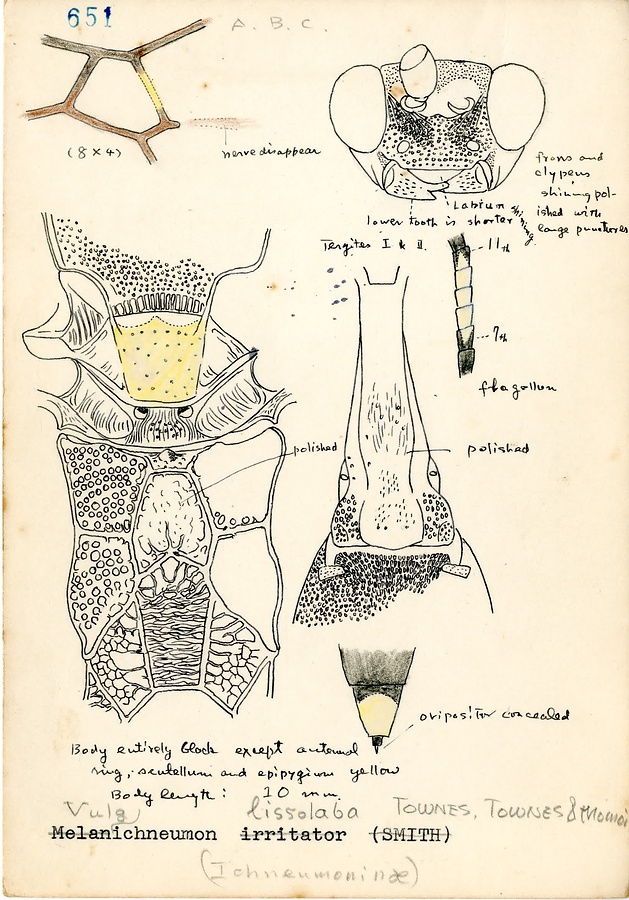 651
A. B. C.
(8 × 4)
nerve disappear
frons and
clypeus
shining pol-
ished with
large punctures
Labium
lower tooth is shorter
shining
Tergites I & II.
11th
7th
flagellum
polished
polished
ovipositor concealed
Body entirely black except antennal
ring, scutellum and epipygium yellow
Body length: 10 mm
Vulg lissolaba TOWNES, TOWNES & Momoi
Melanichneumon irritator (SMITH)
(Ichneumoninæ)